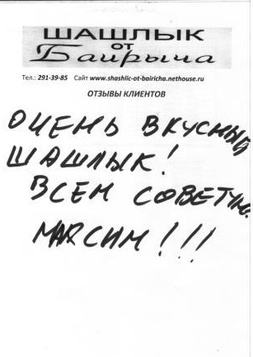 ШАШЛЫК
ОТ
Баирыча
Тел.: 291-39-85 Сайт www.shashlic-ot-bairicha.nethouse.ru
ОТЗЫВЫ КЛИЕНТОВ
ОЧЕНЬ ВКУСНЫЙ
ШАШЛЫК!
ВСЕМ СОВЕТУЮ.
МАКСИМ!!!